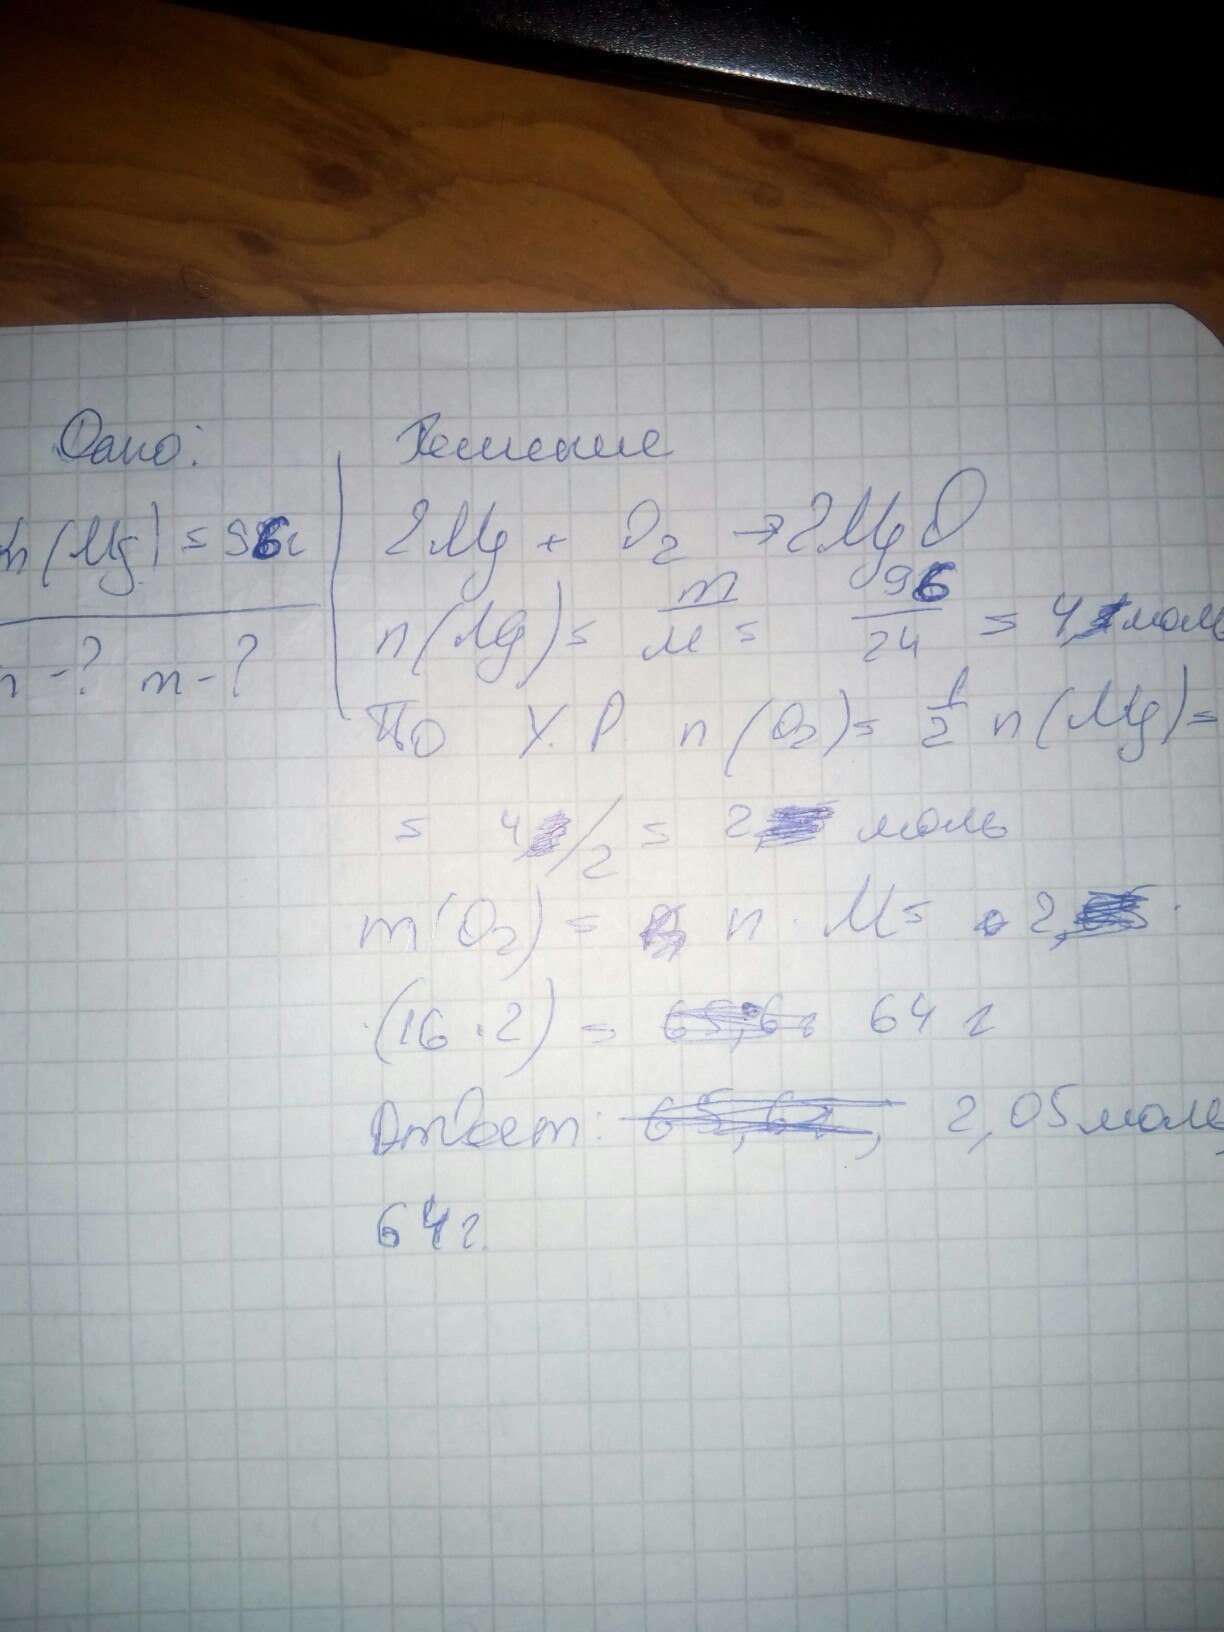 Дано:
m (Mg) = 96г
n - ? m - ?
Решение
2Mg + O₂ → 2MgO
n (Mg) = m/M = 96/24 = 4 моль
По У.Р n (O₂) = 1/2 n (Mg) =
= 4/2 = 2 моль
m (O₂) = n · M = 2, ·
·(16 · 2) = 65,6г 64 г
Ответ: 65,6г, 2,05 моль,
64г.